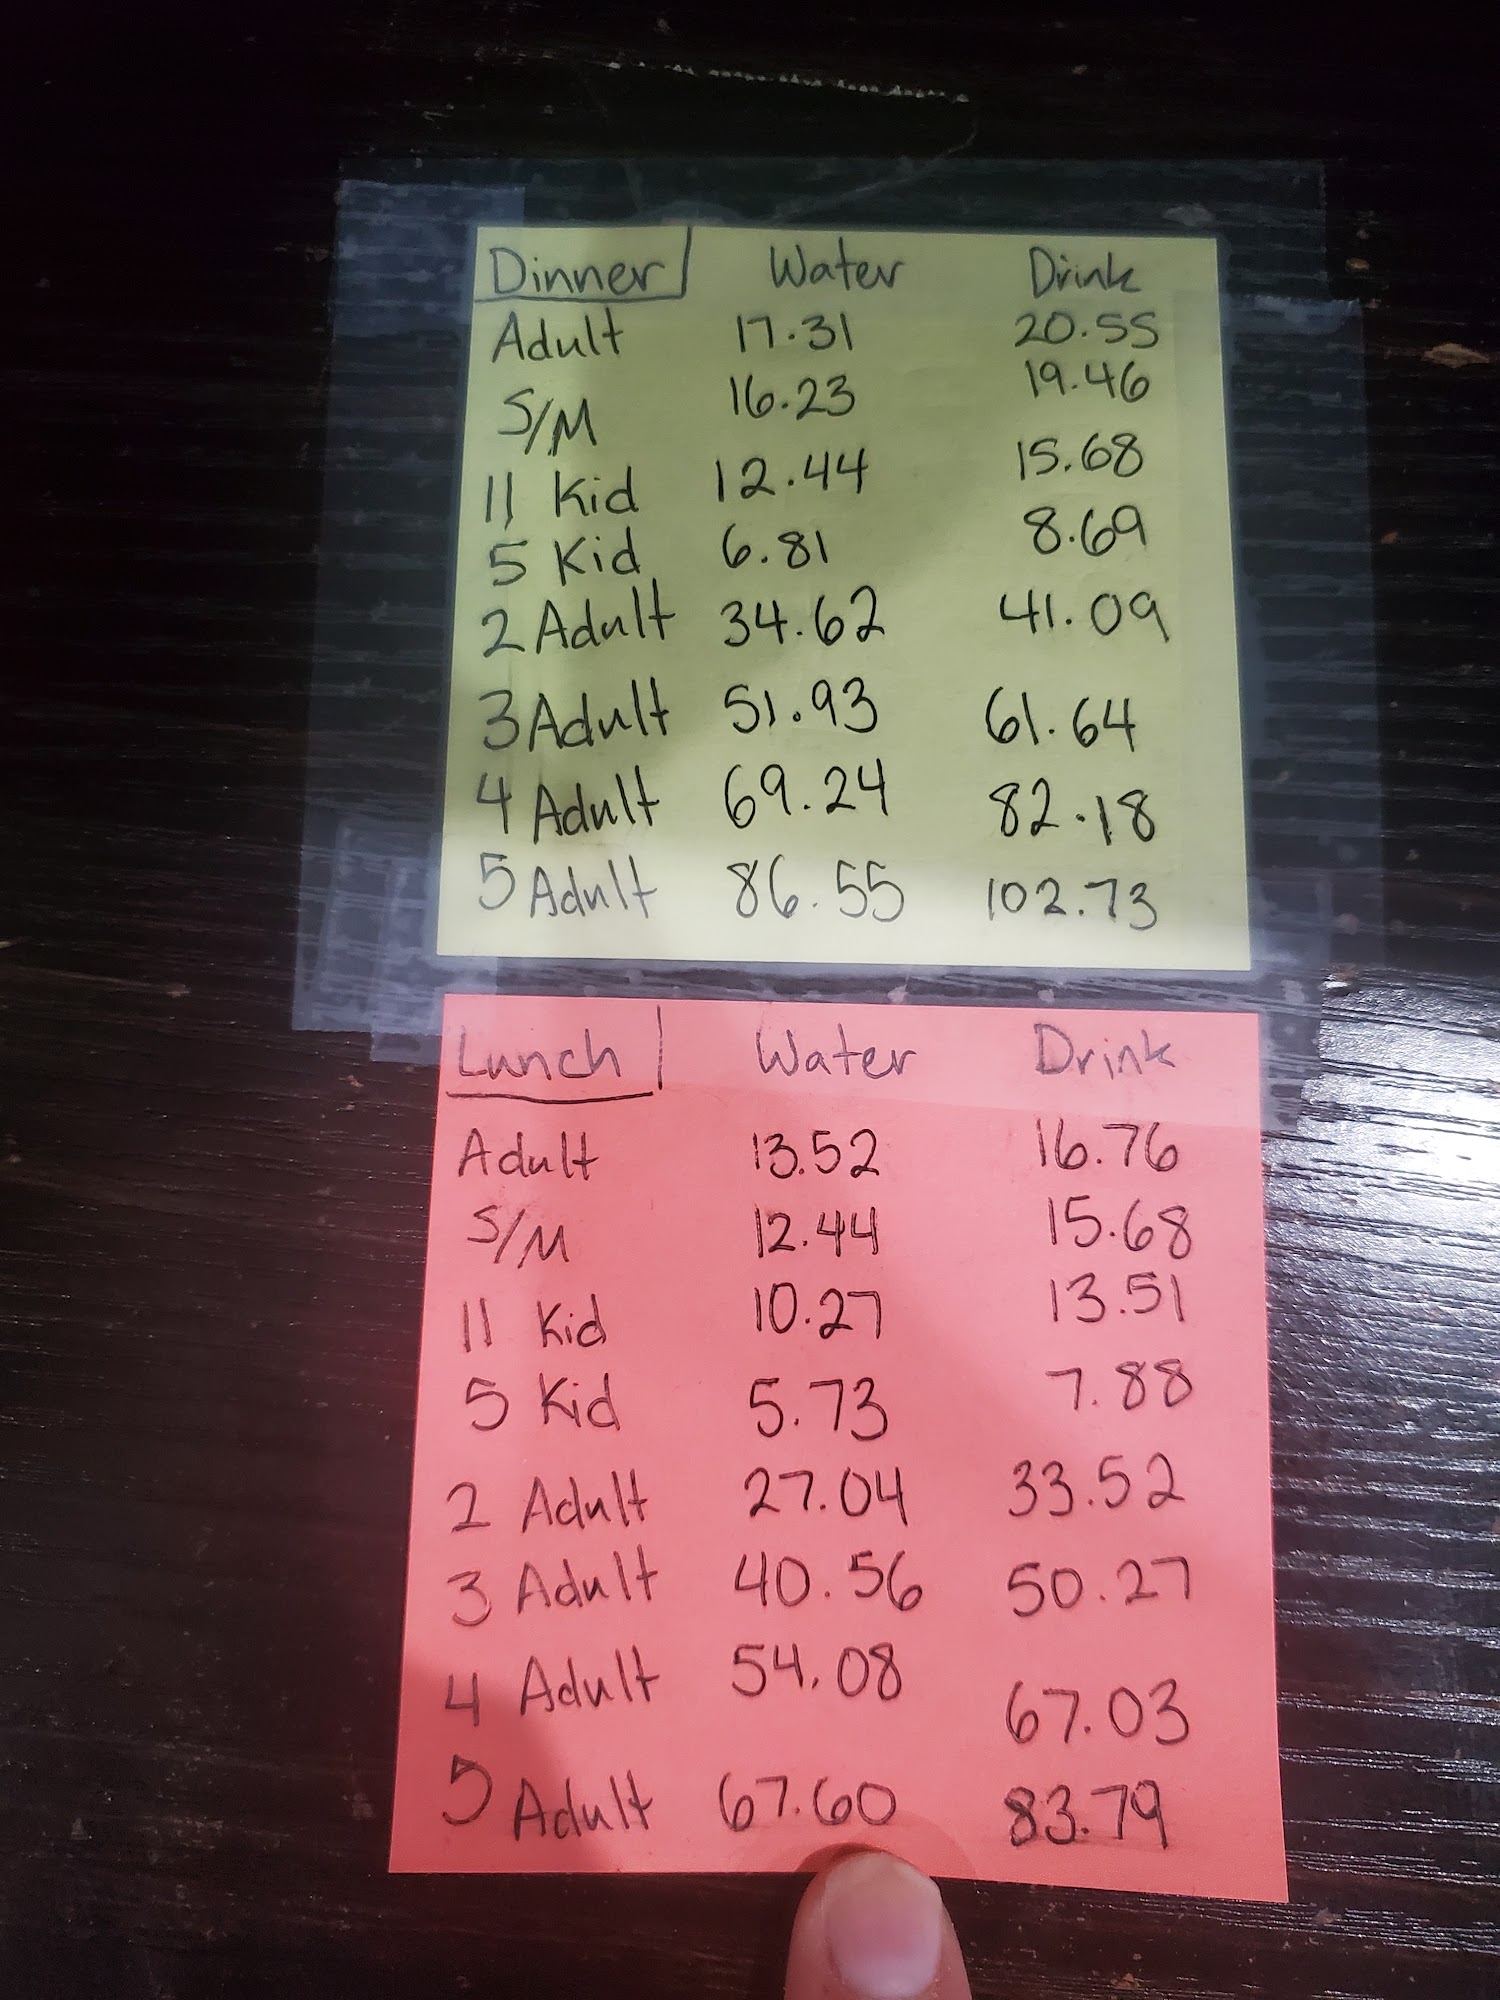 Dinner Water Drink
Adult 17.31 20.55
S/M 16.23 19.46
11 Kid 12.44 15.68
5 Kid 6.81 8.69
2 Adult 34.62 41.09
3 Adult 51.93 61.64
4 Adult 69.24 82.18
5 Adult 86.55 102.73
Lunch Water Drink
Adult 13.52 16.76
S/M 12.44 15.68
11 Kid 10.27 13.51
5 Kid 5.73 7.88
2 Adult 27.04 33.52
3 Adult 40.56 50.27
4 Adult 54.08 67.03
5 Adult 67.60 83.79